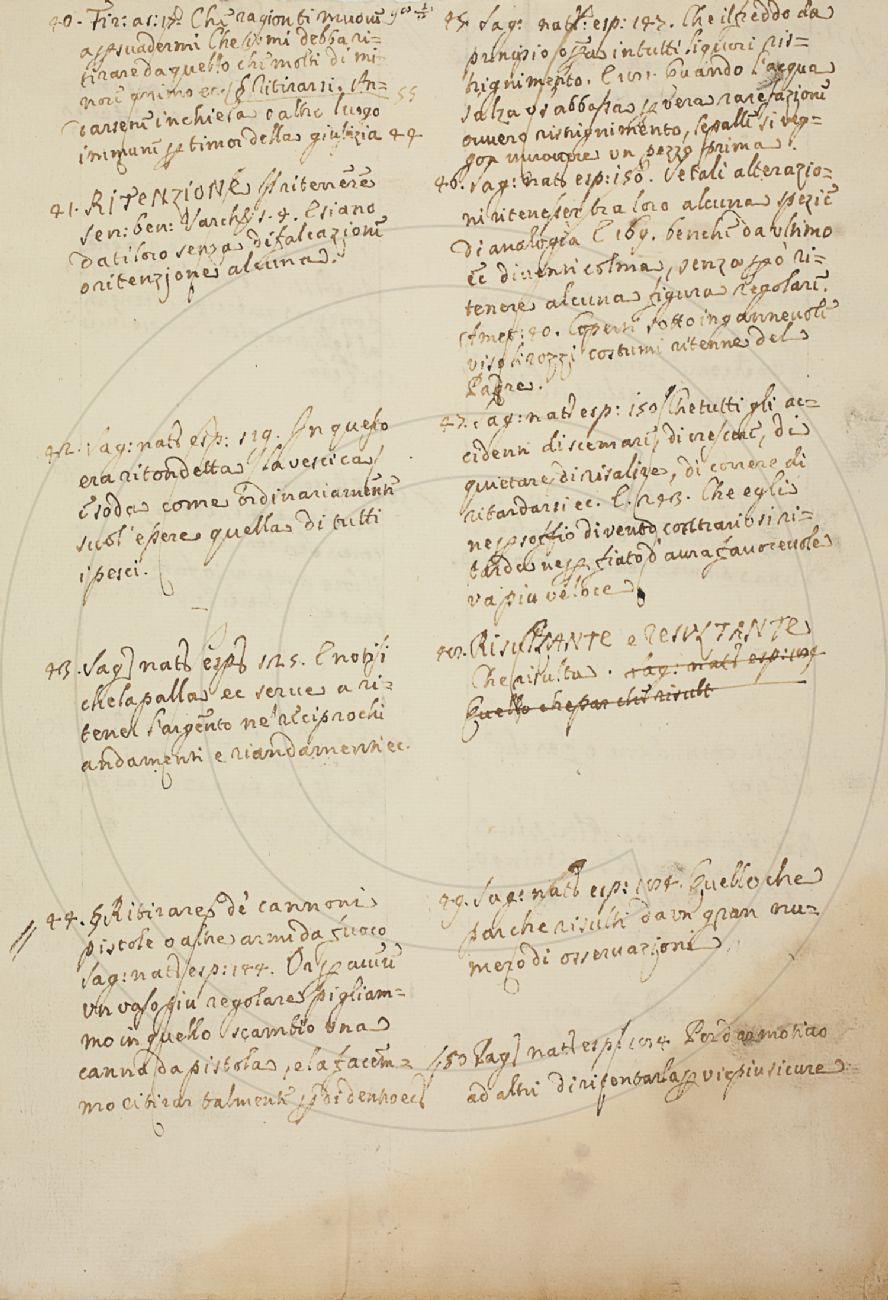 40. Fir: as: 178 Che ragion ti muove
a persuadermi che io mi debba ri=
tirare da quello che molti di mi=
nore animo ec. § Ritirarsi. An=
darsene in chiesa o altro luogo
immune p timor della giustizia 44
55
41. RITENZIONE Il ritenere
Sen: ben: Varch: 5. 4. E siano
dati loro senza difalcazione
o ritenzione alcuna.
42. Sag: nat: esp: 119. In questo
era ritondetta la vescica
e soda come ordinariamente
suol' essere quella di tutti
i pesci.
43. Sag: nat: esp: 125. E notisi
che la palla ec serve a ri=
tener l'argento ne' reciprochi
andamenti e riandamenti ec.
44. § Ritirare de' cannoni
pistole o altre armi da fuoco
Sag: nat: esp: 144. Or p avere
un vaso piu regolare pigliam=
mo in quello scambio una
canna da pistola, e la facem=
mo ritirar talmente p di dentro ec
45. Sag: nat: esp: 147. Che il freddo da
principio opera in tutti liquori ris=
trignimento. E 151. Quando l'acqua
salza o s'abbassa p vera rarefazione
ovvero ristrignimento, le palle si veg=
gon muovere un pezzo prima.
46. Sag: nat: esp: 156. Se tali alterazio=
ni ritenesser tra loro alcuna spezie
di analogia E 169. benche da ultimo
ec diventi colma, senza però ri=
tenere alcuna figura regolare.
Amet: 40. Coperti sotto ingannevole
viso li rozzi costumi ritenne del
Padre.
47. Sag: nat: esp: 159 Che tutti gli ac=
cidenti di scemare, di crescere, di
quietare di risalire, di correre di
ritardarsi ec. E. 243. Che egli
ne p soffio di vento contrario si ri=
tarda ne p fiato d'aura favorevole
va piu veloce
48. RISULTANTE e RESULTANTE
Che risulta. Sag: nat: esp: 109
Quello che par che risult
49. Sag: nat: esp: 184. Quello che
par che risulti da un gran nu=
mero di osservazioni
50 Sag: nat: esp: 184 Per dar motivo
ad altri di ritentarla p vie piu sicure